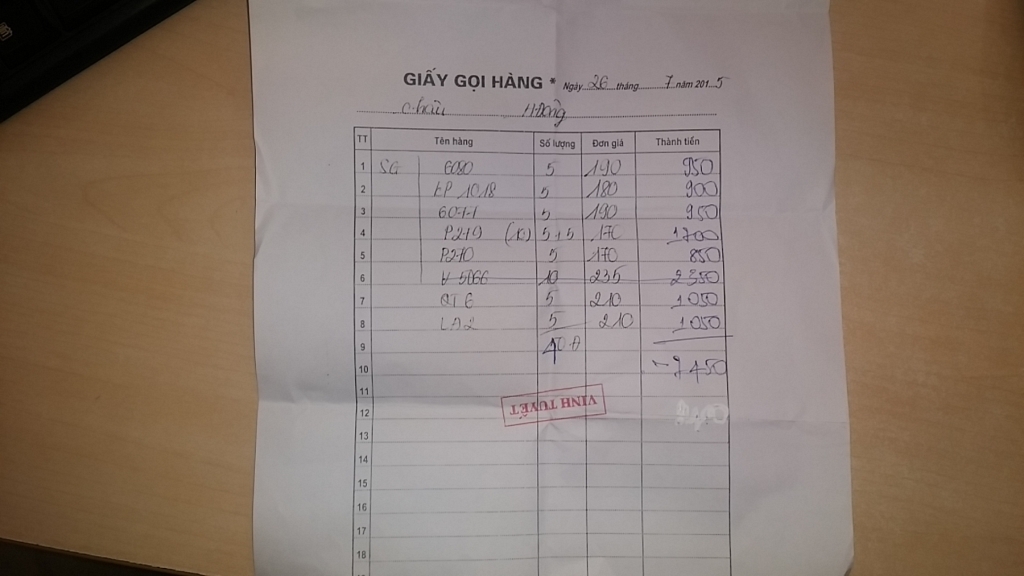 GIẤY GỌI HÀNG * Ngày 26 tháng 7 năm 2015
c. hải H Đông
TT Tên hàng Số lượng Đơn giá Thành tiền
1 SG 6090 5 190 950
2 LP 1018 5 180 900
3 5 190 950
4 P219 (K) 5+5 170 1700
5 P210 5 170 850
6 V 5066 10 235 2350
7 QT 6 5 210 1050
8 LA2 5 210 1050
9
10 7450
11
VINH TUYẾT
12
13
14
15
16
17
18